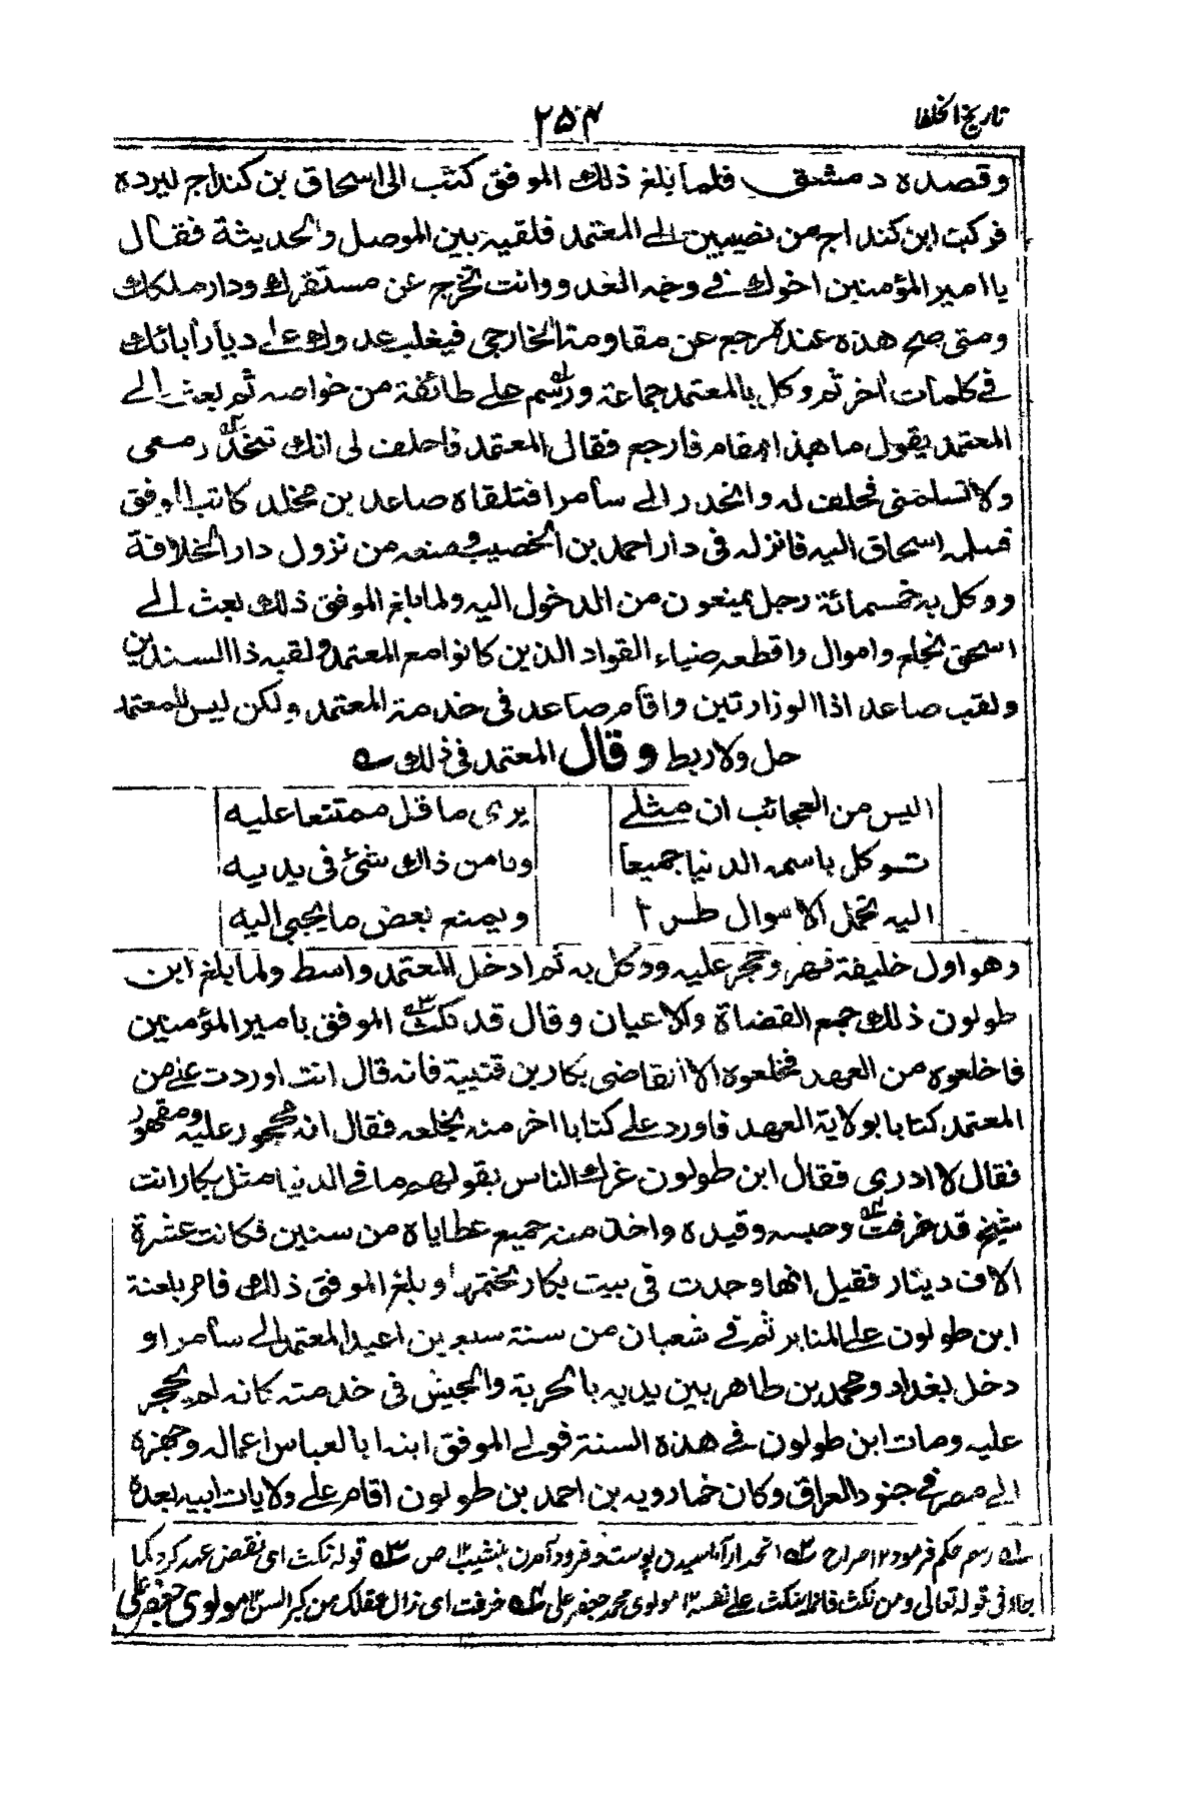 تاريخ الخلفا
٢٥٤
وقصده دمشق فلما بلغ ذلك الموفق كتب الى اسحاق بن كنداج ليرده
فركب ابن كنداج من نصيبين الى المعتمد فلقيه بين الموصل والحديثة فقال
يا امير المؤمنين اخوك فى وجه العدو وانت تخرج عن مستقرك ودار ملكك
ومتى صح هذه عنده رجع عن مقاومة الخارجي فيغلب عدوك على ديار أبائك
فى كلمات اخر ثم وكل بالمعتمد جماعة ورسم على طائفة من خواصه ثم بعث الى
المعتمد يقول ما هذا المقام فارجع فقال المعتمد فاحلف لى انك تنحدر معى
ولا تسلمنى فحلف له وانحدر الى سامرا فتلقاه صاعد بن مخلد كاتب الموفق
فسلمه اسحاق اليه فانزله فى دار احمد بن الخصيب ومنعه من نزول دار الخلافة
ووكل به خمسمائة رجل يمنعون من الدخول اليه ولما بلغ الموفق ذلك بعث الى
اسحق بخلع واموال واقطعه ضياء القواد الذين كانوا مع المعتمد ولقبه ذا السندين
ولقب صاعد اذا الوزارتين واقام صاعد فى خدمة المعتمد ولكن ليس للمعتمد
حل ولا ربط وقال المعتمد فى ذلك
اليس من العجائب ان مثلى يرى ما قل ممتنعا عليه
توكل باسمه الدنيا جميعا وما من ذاك شئ فى يديه
اليه تحمل الاموال طرا ويمنع بعض ما يجبى اليه
وهو اول خليفة قهر وحجر عليه ووكل به ثم ادخل المعتمد واسط ولما بلغ ابن
طولون ذلك جمع القضاة والاعيان وقال قد نكث الموفق بامير المؤمنين
فاخلعوه من العهد فخلعوه الا القاضى بكار بن قتيبة فانه قال انت اوردت على من
المعتمد كتابا بولاية العهد فاورد على كتابا اخر منه بخلعه فقال انه محجور عليه ومقهور
فقال لا ادرى فقال ابن طولون غرك الناس بقولهم ما فى الدنيا مثل بكار انت
شيخ قد خرفت وحبسه وقيده واخذ منه جميع عطاياه من سنين فكانت عشرة
الاف دينار فقيل انها وجدت فى بيت بكار بختمها وبلغ الموفق ذلك فامر بلعنة
ابن طولون على المنابر ثم فى شعبان من سنة سبعين اعيد المعتمد الى سامرا و
دخل بغداد ومحمد بن طاهر بين يديه بالحربة والجيش فى خدمته كانه لم يحجر
عليه ومات ابن طولون فى هذه السنة فولى الموفق ابنه ابا لعباس اعماله وجهزه
الى مصر فى جنود العراق وكان خمارويه بن احمد بن طولون اقام على ولايات ابيه بعده
له رسم حكم فرمود ١٢ صراح ٢ه انحدار آماسيدن پوست وفرود آمدن بنشيب ١٢ ص ٣ه قوله نكث اى نقض عهد كرد كما
جاء فى قوله تعالى ومن نكث فانما ينكث على نفسه ١٢ مولوى محمد جعفر على ٤ه خرفت اى زال عقلك من كبر السن ١٢ مولوى جعفر على